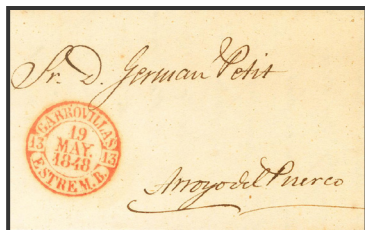 Sr. D. German Petit
GARROVILLAS
19
MAY.
1848
13 13
ESTREM. B.
Arroyo del Puerco